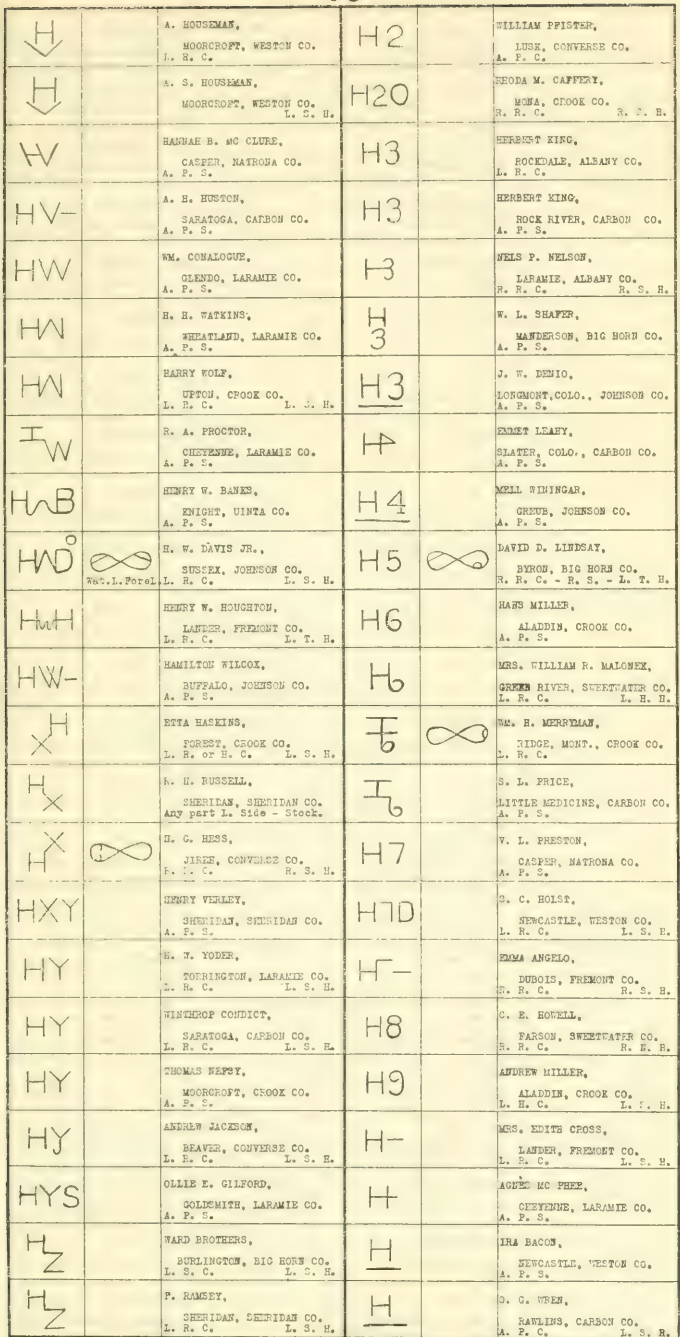 H
A. HOUSEMAN,
MOORCROFT, WESTON CO.
L. R. C.
H
A. S. HOUSEMAN,
MOORCROFT, WESTON CO.
L. S. H.
HV
HANNAH B. MC CLURE,
CASPER, NATRONA CO.
A. P. S.
HV-
A. H. HUSTON,
SARATOGA, CARBON CO.
A. P. S.
HW
WM. CONALOGUE,
GLENDO, LARAMIE CO.
A. P. S.
HW
H. H. WATKINS,
WHEATLAND, LARAMIE CO.
A. P. S.
HW
HARRY WOLF,
UPTON, CROOK CO.
L. R. C. L. S. H.
HW
R. A. PROCTOR,
CHEYENNE, LARAMIE CO.
A. P. S.
HWB
HENRY W. BANKS,
KNIGHT, UINTA CO.
A. P. S.
HWD
Wat.L.ForeL.
H. W. DAVIS JR.,
SUSSEX, JOHNSON CO.
L. R. C. L. S. H.
HWH
HENRY W. HOUGHTON,
LANDER, FREMONT CO.
L. R. C. L. T. H.
HW-
HAMILTON WILCOX,
BUFFALO, JOHNSON CO.
A. P. S.
XH
ETTA HASKINS,
FOREST, CROOK CO.
L. R. or H. C. L. S. H.
HX
H. RUSSELL,
SHERIDAN, SHERIDAN CO.
Any part L. Side - Stock.
HX
H. G. HESS,
JIREH, CONVERSE CO.
R. S. H.
HXY
HENRY VERLEY,
SHERIDAN, SHERIDAN CO.
A. P. S.
HY
YODER,
TORRINGTON, LARAMIE CO.
L. R. C. L. S. H.
HY
WINTHROP CONDICT,
SARATOGA, CARBON CO.
L. R. C. L. S. H.
HY
THOMAS NEFSY,
MOORCROFT, CROOK CO.
A. P. S.
HY
ANDREW JACKSON,
BEAVER, CONVERSE CO.
L. R. C. L. S. H.
HYS
OLLIE E. GILFORD,
GOLDSMITH, LARAMIE CO.
A. P. S.
HZ
WARD BROTHERS,
BURLINGTON, BIG HORN CO.
L. S. C. L. S. H.
HZ
P. RAMSEY,
SHERIDAN, SHERIDAN CO.
L. R. C. L. S. H.
H2
WILLIAM PFISTER,
LUSK, CONVERSE CO.
A. P. C.
H20
RHODA M. CAFFERY,
MONA, CROOK CO.
R. R. C. R. S. H.
H3
HERBERT KING,
ROCKDALE, ALBANY CO.
L. R. C.
H3
HERBERT KING,
ROCK RIVER, CARBON CO.
A. P. S.
H3
NELS P. NELSON,
LARAMIE, ALBANY CO.
R. R. C. R. S. H.
H
3
W. L. SHAFER,
MANDERSON, BIG HORN CO.
A. P. S.
H3
J. W. DENIO,
LONGMONT,COLO., JOHNSON CO.
A. P. S.
H4
EMMET LEAHY,
SLATER, COLO., CARBON CO.
A. P. S.
H4
MELL WININGAR,
GREUB, JOHNSON CO.
A. P. S.
H5
DAVID D. LINDSAY,
BYRON, BIG HORN CO.
R. R. C. - R. S. - L. T. H.
H6
HANS MILLER,
ALADDIN, CROOK CO.
A. P. S.
H6
MRS. WILLIAM R. MALONEK,
GREEN RIVER, SWEETWATER CO.
L. R. C. L. H. H.
H6
WM. H. MERRYMAN,
RIDGE, MONT., CROOK CO.
L. R. C.
H6
S. L. PRICE,
LITTLE MEDICINE, CARBON CO.
A. P. S.
H7
V. L. PRESTON,
CASPER, NATRONA CO.
A. P. S.
H7D
C. HOLST,
NEWCASTLE, WESTON CO.
L. R. C. L. S. H.
H7-
EMMA ANGELO,
DUBOIS, FREMONT CO.
R. R. C. R. S. H.
H8
C. E. HOWELL,
FARSON, SWEETWATER CO.
R. R. C. R. N. H.
H9
ANDREW MILLER,
ALADDIN, CROOK CO.
L. H. C. L. S. H.
H-
MRS. EDITH CROSS,
LANDER, FREMONT CO.
L. R. C. L. S. H.
H
AGNES MC PHEE,
CHEYENNE, LARAMIE CO.
A. P. S.
H
IRA BACON,
NEWCASTLE, WESTON CO.
A. P. S.
H
O. G. WREN,
RAWLINS, CARBON CO.
A. P. C. L. S. H.